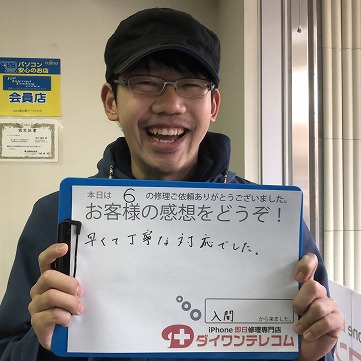 パソコン
安心のお店
FUJITSU
会員店
本日は 6 の修理ご依頼ありがとうございました。
お客様の感想をどうぞ！
早くて丁寧な対応でした。
入間 から来ました。
iPhone 即日修理専門店
ダイワンテレコム